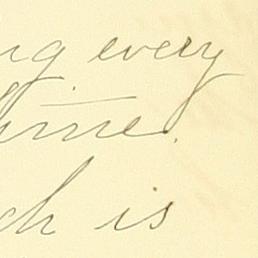 ng every
time.
ch is